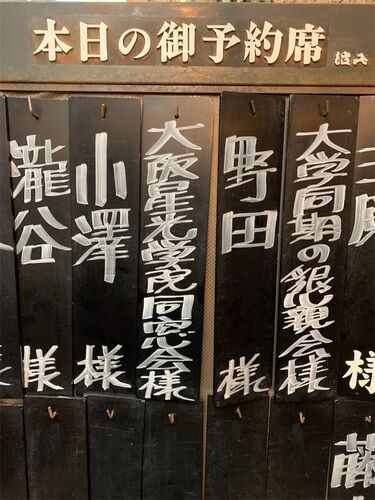 本日の御予約席
様
大学同期の懇親会様
野田 様
大阪星光学院同窓会様
小澤 様
瀧谷 様
藤